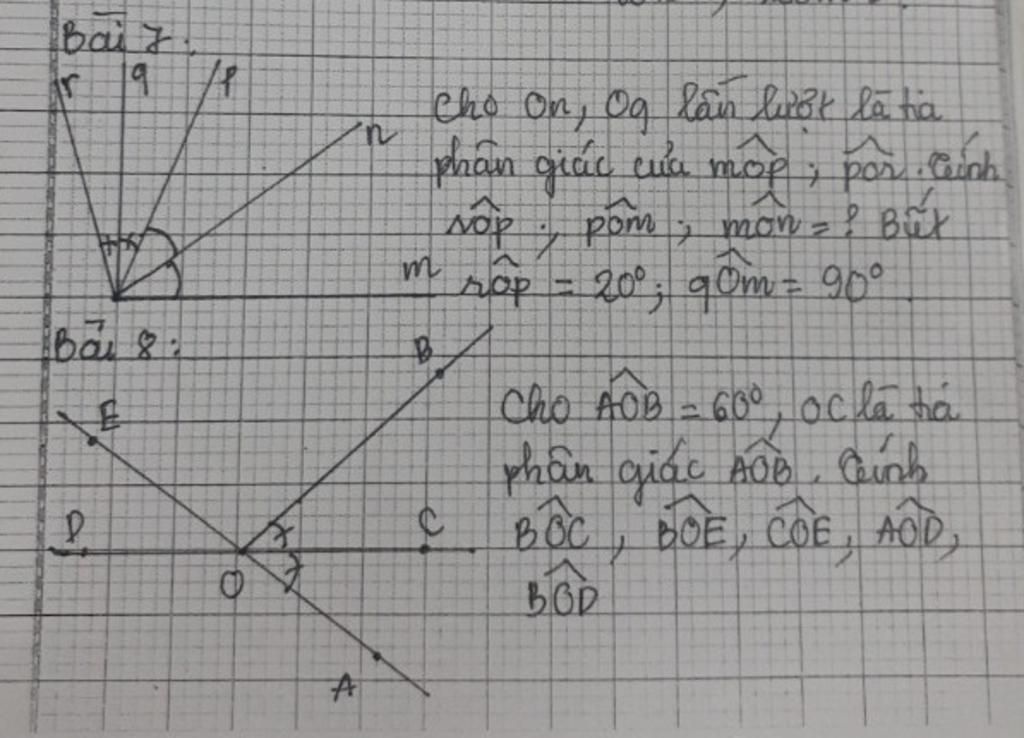 Bài 7:
r q p n m
Cho On, Oq lần lượt là tia
phân giác của mÔp ; pÔr. Tính
nÔp ; pÔm ; mÔn = ? Biết
rÔp = 20°; qÔm = 90°
Bài 8:
E B D C O A
Cho AÔB = 60°, OC là tia
phân giác AÔB. Tính
BÔC, BÔE, CÔE, AÔD,
BÔD